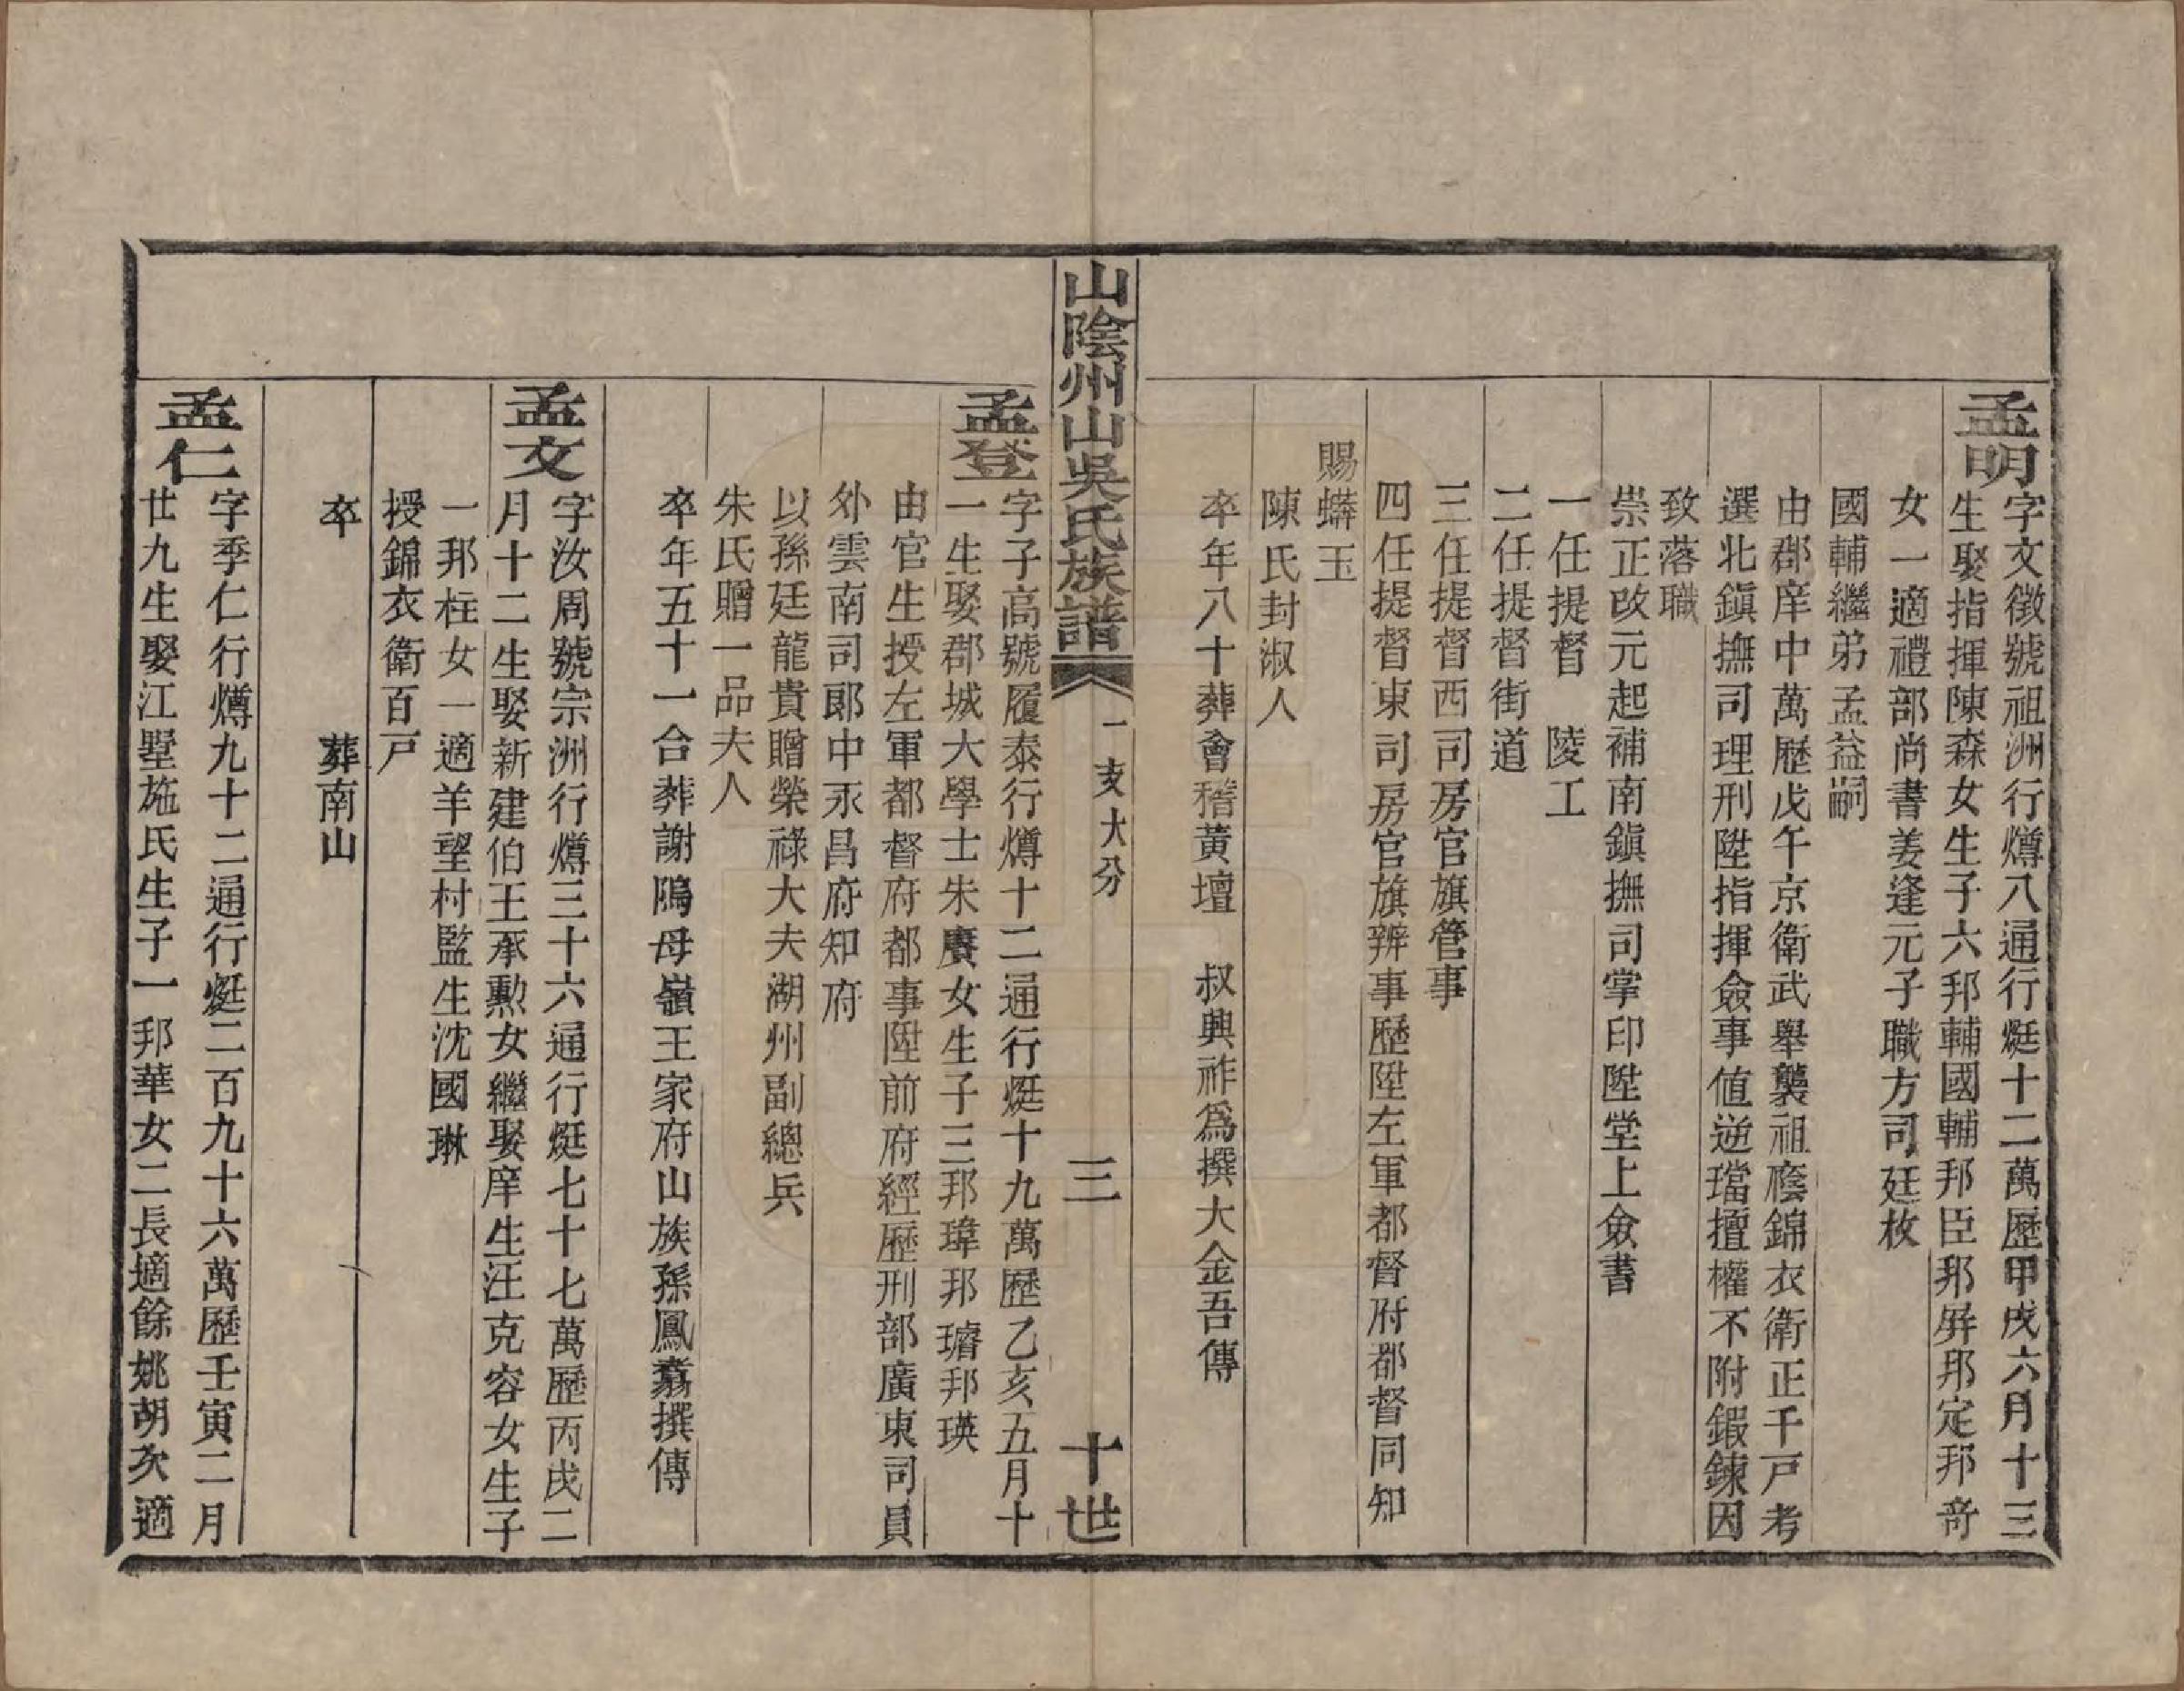 孟明
字文徵號祖洲行燇八通行烶十二萬歷甲戌六月十三
生娶指揮陳森女生子六邦輔國輔邦臣邦屏邦定邦奇
女一適禮部尚書姜逢元子職方司廷枚
國輔繼弟孟益嗣
由郡庠中萬歷戊午京衛武舉襲祖廕錦衣衛正千戸考
選北鎭撫司理刑陞指揮僉事值逆璫擅權不附鍛鍊因
致落職
崇正改元起補南鎭撫司掌印陞堂上僉書
一任提督　陵工
二任提督街道
三任提督西司房官旗管事
四任提督東司房官旗辦事歷陞左軍都督府都督同知
賜蟒玉
陳氏封淑人
卒年八十葬會稽黃壇　叔興祚爲撰大金吾傳
山陰州山吳氏族譜　一支大分　三　十世
孟登
字子高號履泰行燇十二通行烶十九萬歷乙亥五月十
一生娶郡城大學士朱賡女生子三邦瑋邦璿邦瑛
由官生授左軍都督府都事陞前府經歷刑部廣東司員
外雲南司郎中永昌府知府
以孫廷龍貴贈榮祿大夫湖州副總兵
朱氏贈一品夫人
卒年五十一合葬謝隝母嶺王家府山族孫鳳翥撰傳
孟文
字汝周號宗洲行燇三十六通行烶七十七萬歷丙戌二
月十二生娶新建伯王承勳女繼娶庠生汪克容女生子
一邦柱女一適羊望村監生沈國琳
授錦衣衛百戸
卒　葬南山
孟仁
字季仁行燇九十二通行烶二百九十六萬歷壬寅二月
廿九生娶江墅施氏生子一邦華女二長適餘姚胡次適